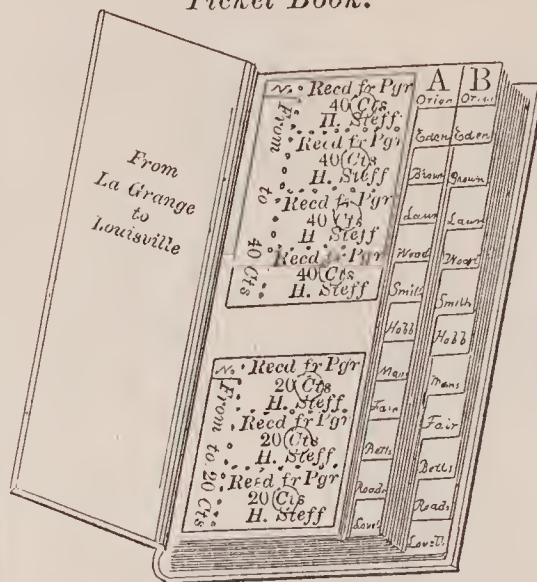 Ticket Book.
From
La Grange
to
Louisville
No. Recd fr Pgr
40 Cts
H. Steff
Recd fr Pgr
40 Cts
H. Steff
Recd fr Pgr
40 Cts
H. Steff
Recd fr Pgr
40 Cts
H. Steff
From to 40 Cts
No. Recd fr Pgr
20 Cts
H. Steff
Recd fr Pgr
20 Cts
H. Steff
Recd fr Pgr
20 Cts
H. Steff
From to 20 Cts
A
Eden
Brown
Lawn
Wood
Smith
Hobb
Mans
Fair
Betts
Roads
B
Eden
Lawn
Wood
Smith
Hobb
Mans
Fair
Betts
Roads